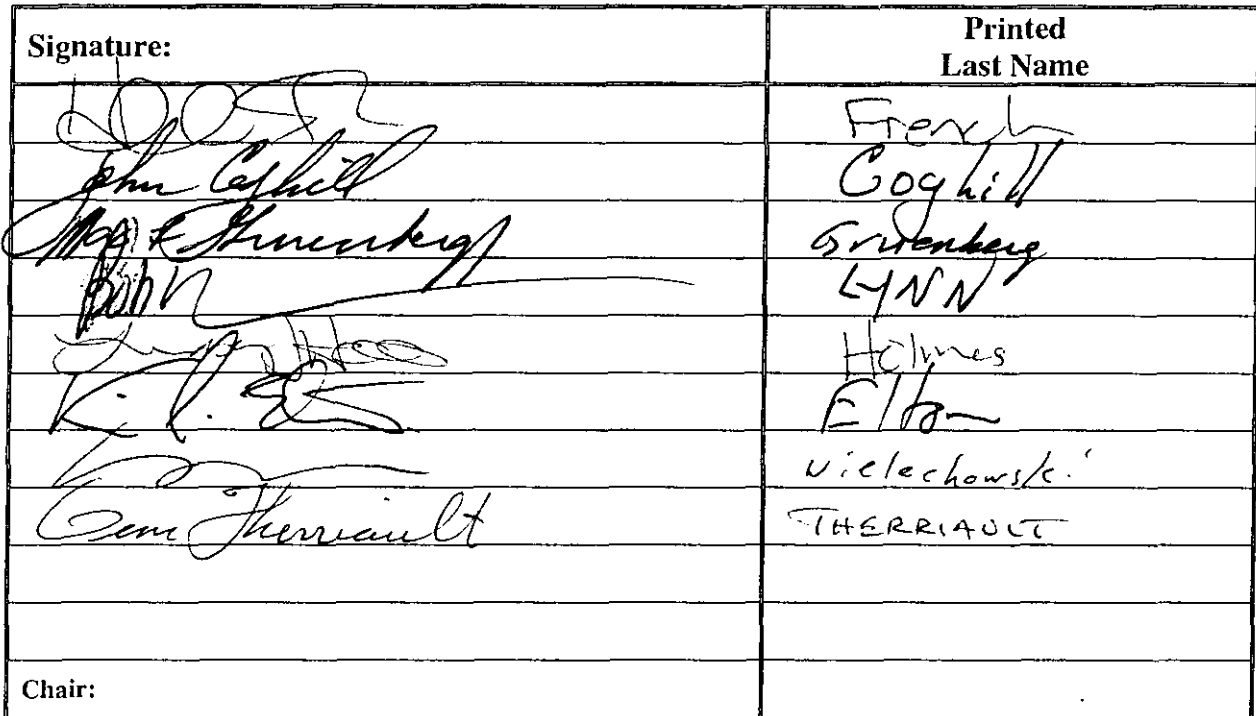 Signature: Printed Last Name
French
John Coghill Coghill
Gruenberg Gruenberg
Bob LYNN
Holmes
Elton
Wielechowski
Gene Therriault THERRIAULT
Chair: